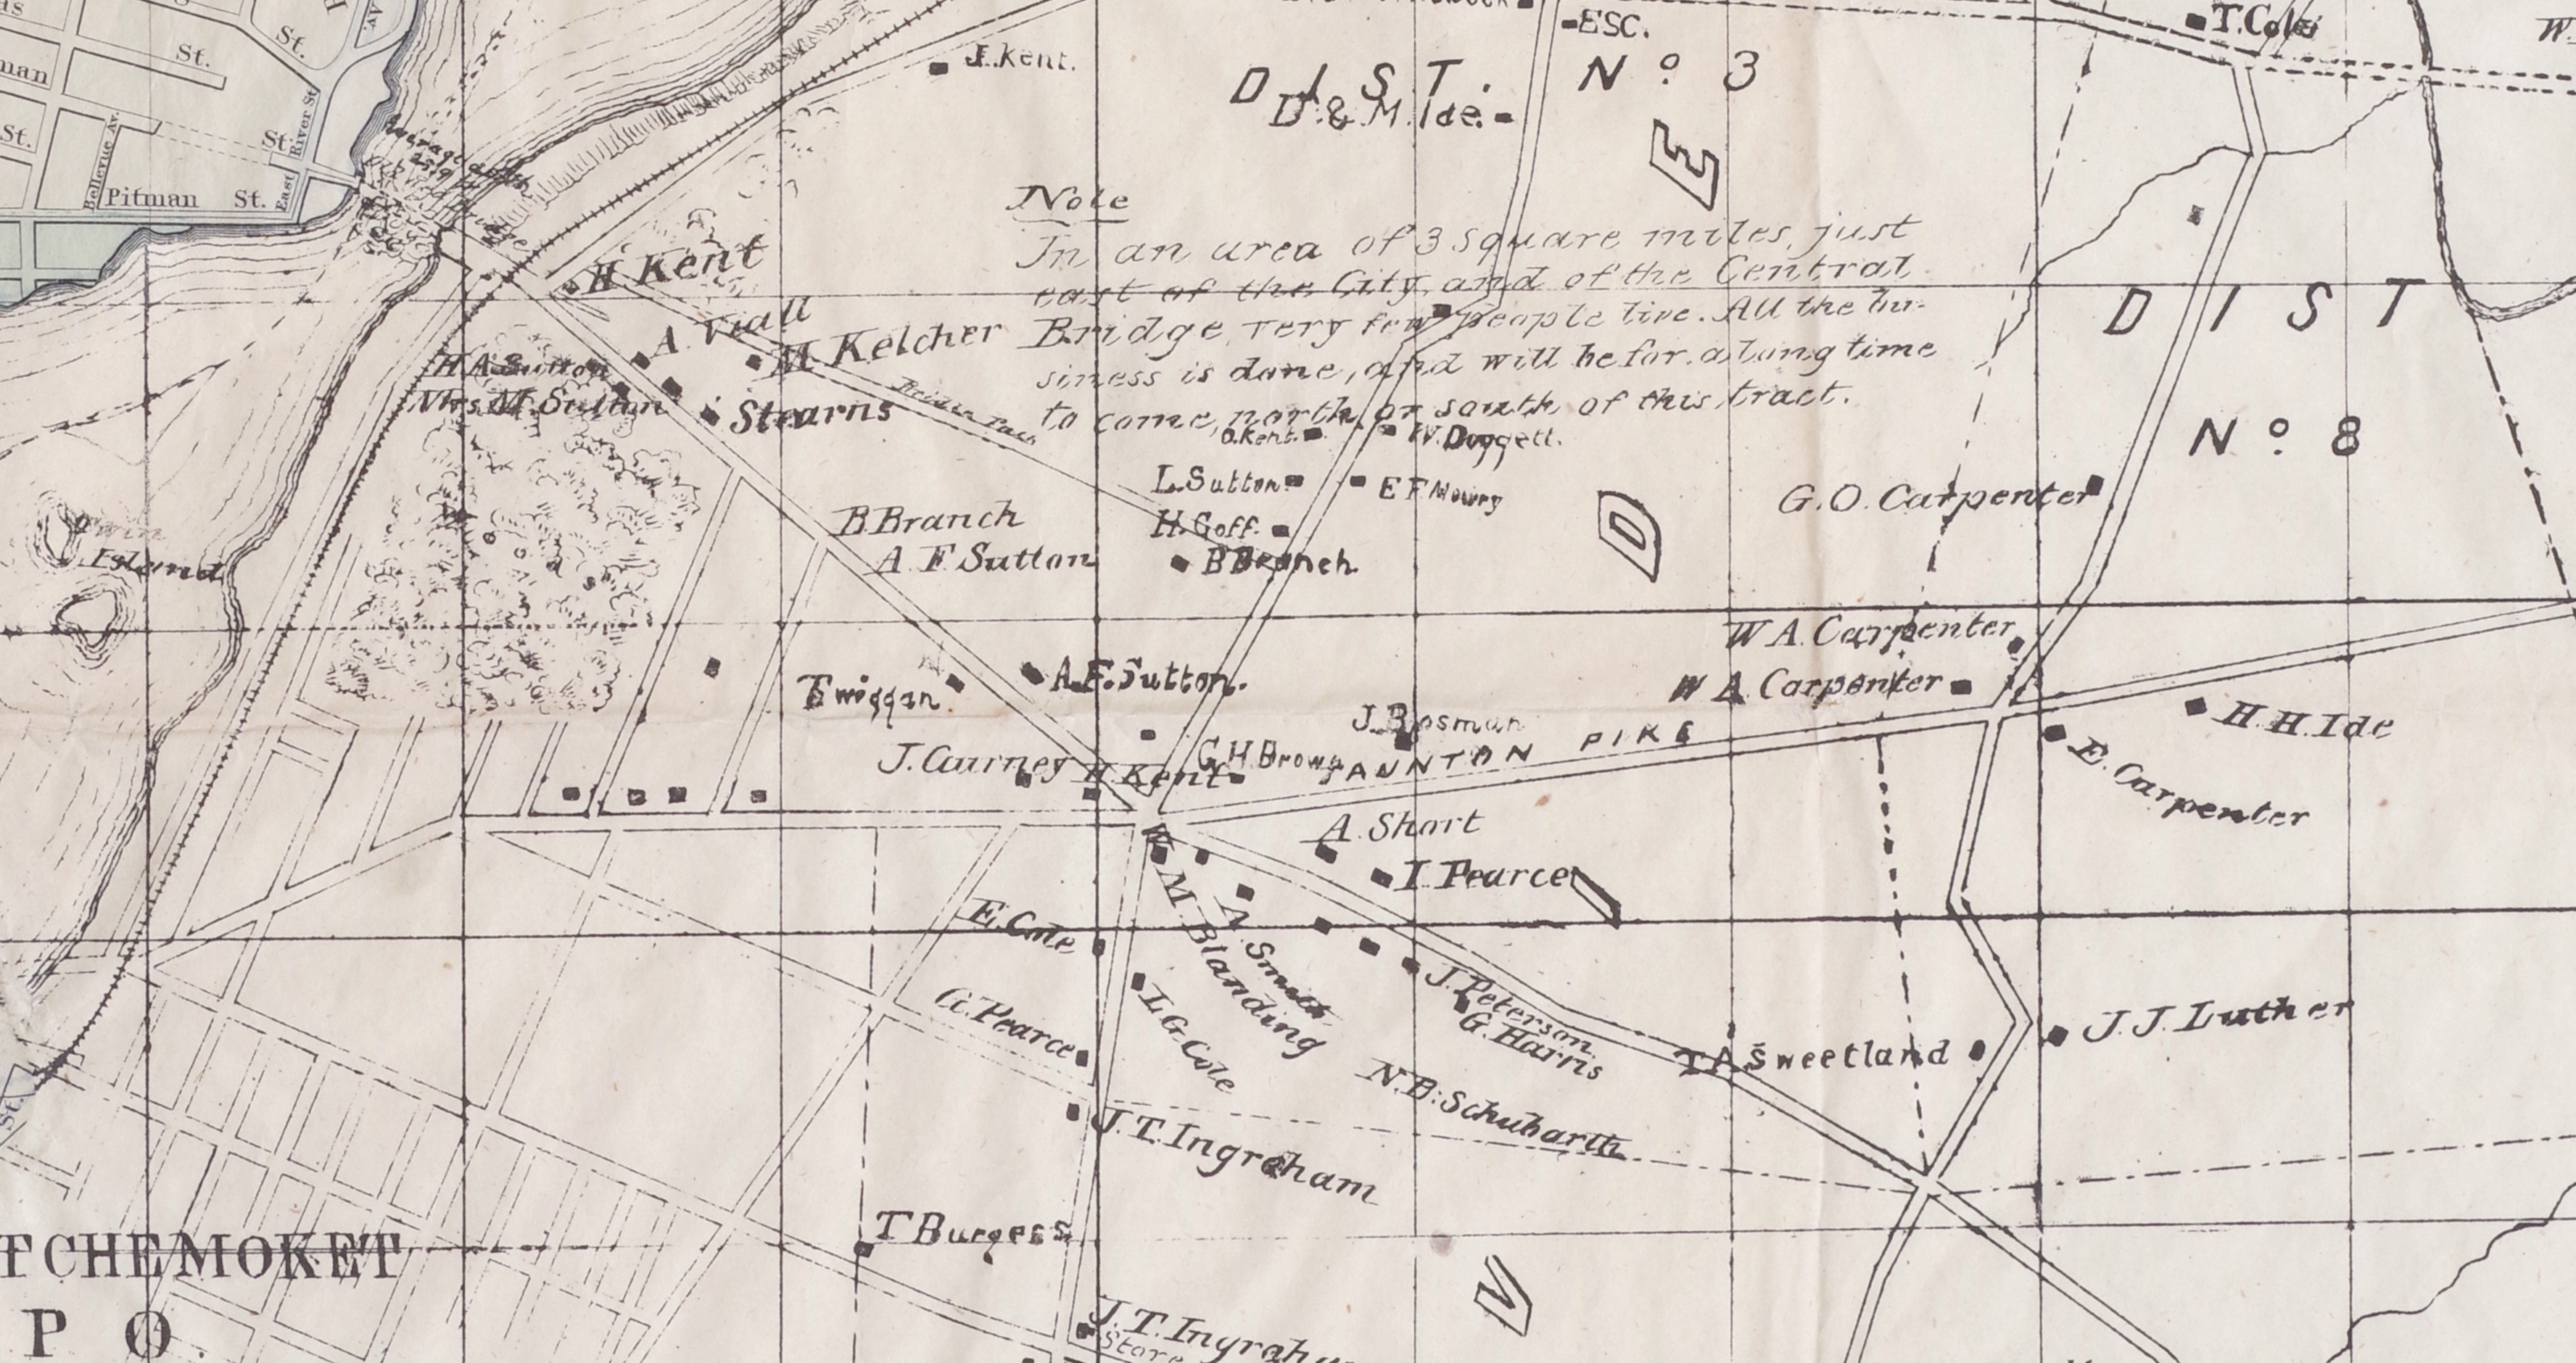 St.
St.
AV
man
St.
River St
Bellevue Av.
St.
Pitman St. East
J. Kent.
ESC.
T. Cole
W.
DIST. Nº 3
D. & M. Ide.
E
Note
In an area of 3 square miles, just
east of the City, and of the Central
Bridge, very few people live. All the bu-
siness is done, and will be for a long time
to come, north or south of this tract.
H Kent
A Viall
M. Kelcher
H A Sutton
Mrs. M. Sutton
Stearns
DIST
Nº 8
O. Kent.
W. Doggett.
L. Sutton
E F Mowry
H. Goff.
B Branch
G. O. Carpenter
D
B. Branch
A F Sutton
Island
W A. Carpenter
W A. Carpenter
Twiggan
A. F. Sutton.
H. H. Ide
E. Carpenter
J. Bosman
G H Brown
TAUNTON PIKE
J. Carney
H Kent
A. Short
I. Pearce
I
M. Blanding
N. Smith
E. Cole
L. G. Cole
G. Pearce
J. Peterson
G. Harris
N. B. Schubarth
T A Sweetland
J. J. Luther
J. T. Ingraham
T Burgess
TCHEMOKET
P O.
V
J. T. Ingraha
Store
St.